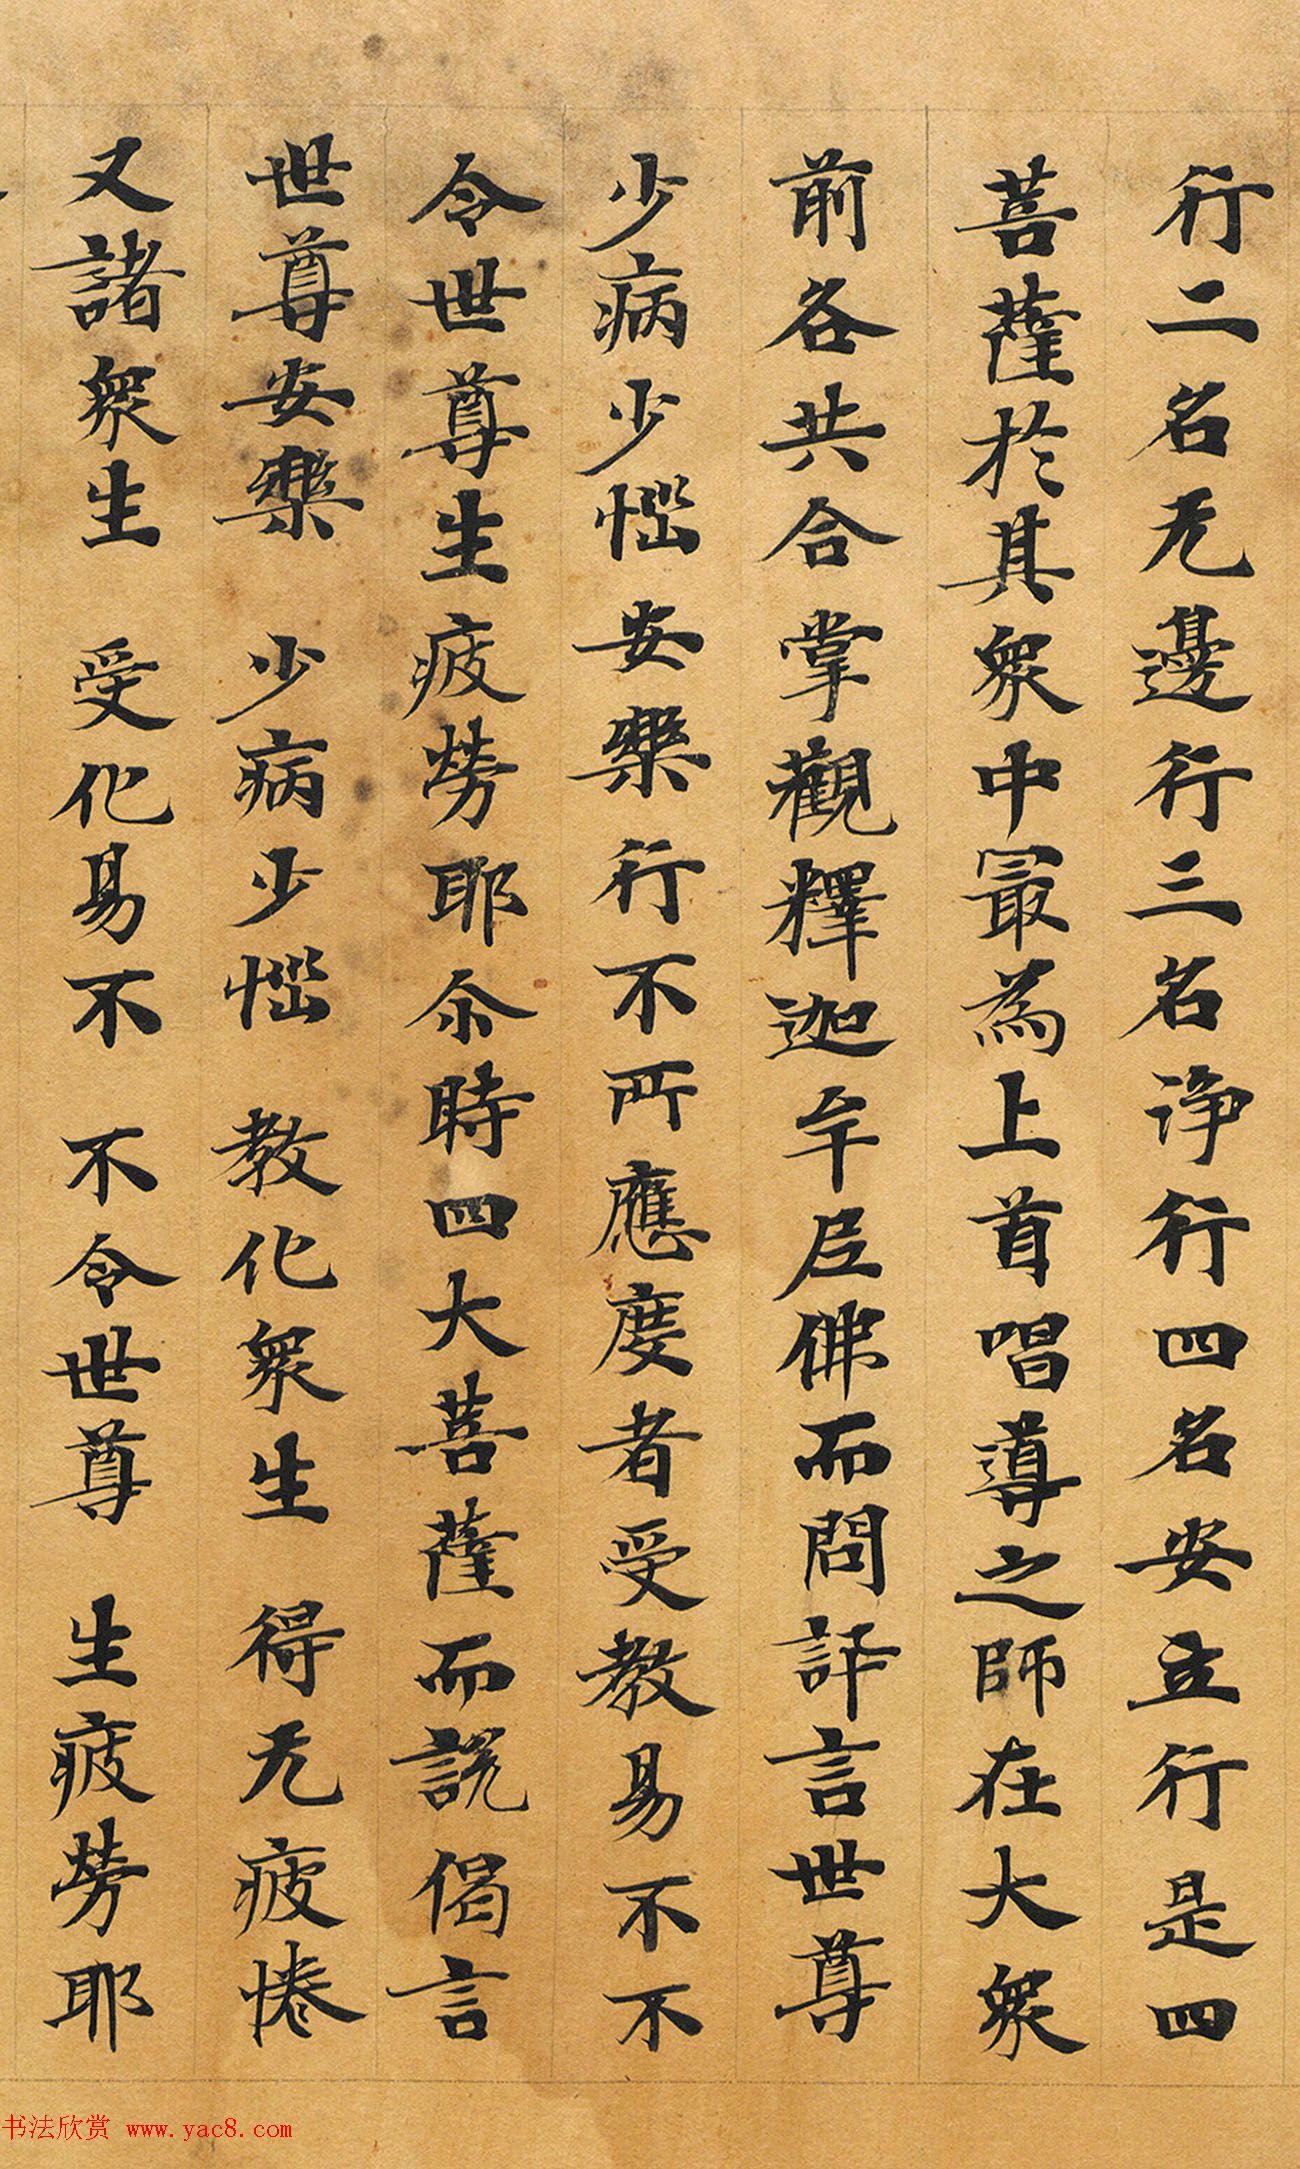 行二名无邊行三名淨行四名安立行是四
菩薩於其眾中冣為上首唱導之師在大眾
前各共合掌觀釋迦牟尼佛而問訊言世尊
少病少惱安樂行不所應度者受教易不不
令世尊生疲勞耶尒時四大菩薩而說偈言
世尊安樂 少病少惱 教化眾生 得无疲惓
又諸眾生 受化易不 不令世尊 生疲勞耶
书法欣赏 www.yac8.com